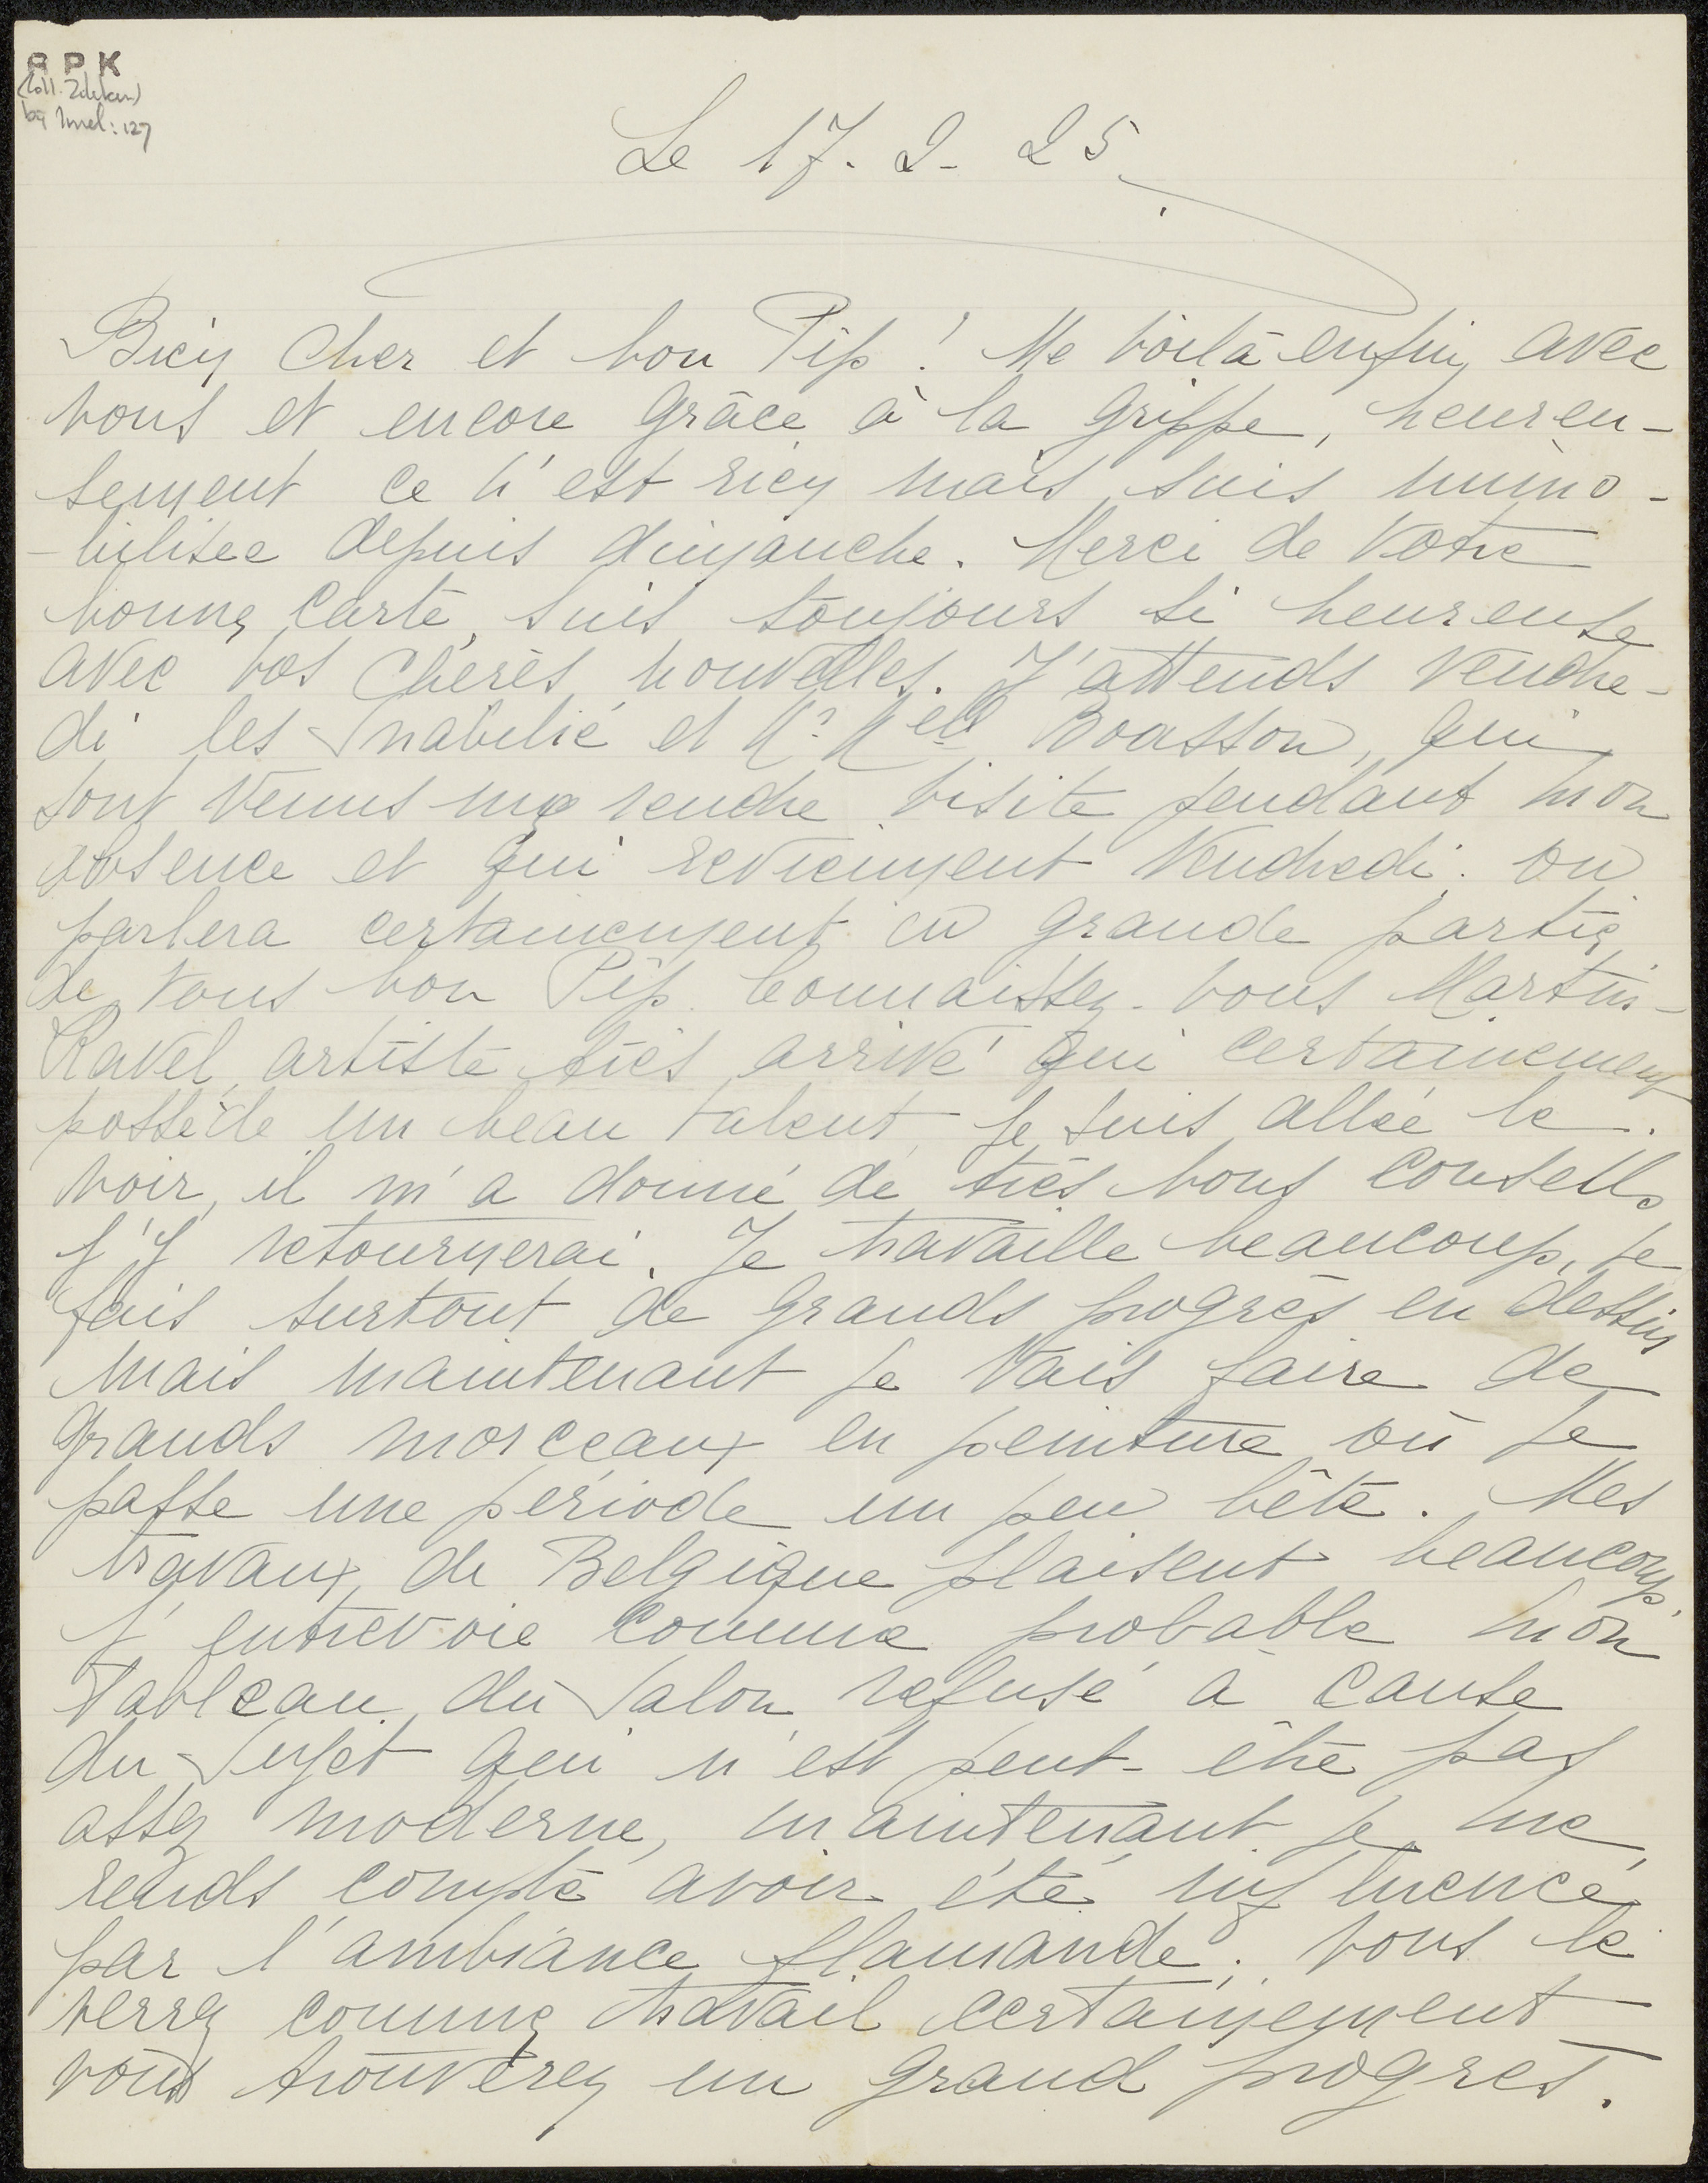 RPK
Le 17. 2 - 25.
Bien Cher et bon Pip ! Me voilà enfin avec
vous et encore grâce à la grippe, heureu-
sement ce n'est rien mais suis immo-
-bilisée depuis dimanche. Merci de votre
bonne carte, suis toujours si heureuse
avec vos chères nouvelles. J'attends vendre-
di les Snabilié et Mr Melle Boasson, qui
sont venus me rendre visite pendant mon
absence et qui reviennent Vendredi. on
parlera certainement en grande partie
de vous bon Pip. Connaissez-vous Martin-
Ravel, artiste très arrivé qui certainement
possède un beau talent, je suis allée le
voir, il m'a donné de très bons conseils
j'y retournerai. Je travaille beaucoup, je
fais surtout de grands progrès en dessin
mais maintenant je vais faire de
grands morceaux en peinture où je
passe une période un peu bête. Mes
travaux de Belgique plaisent beaucoup,
j'entrevoie comme probable mon
tableau du Salon refusé à cause
du Sujet qui n'est peut-être pas
assez moderne, maintenant je me
rends compte avoir été influencé
par l'ambiance flamande. vous le
verrez comme travail certainement
vous trouverez un grand progrès.